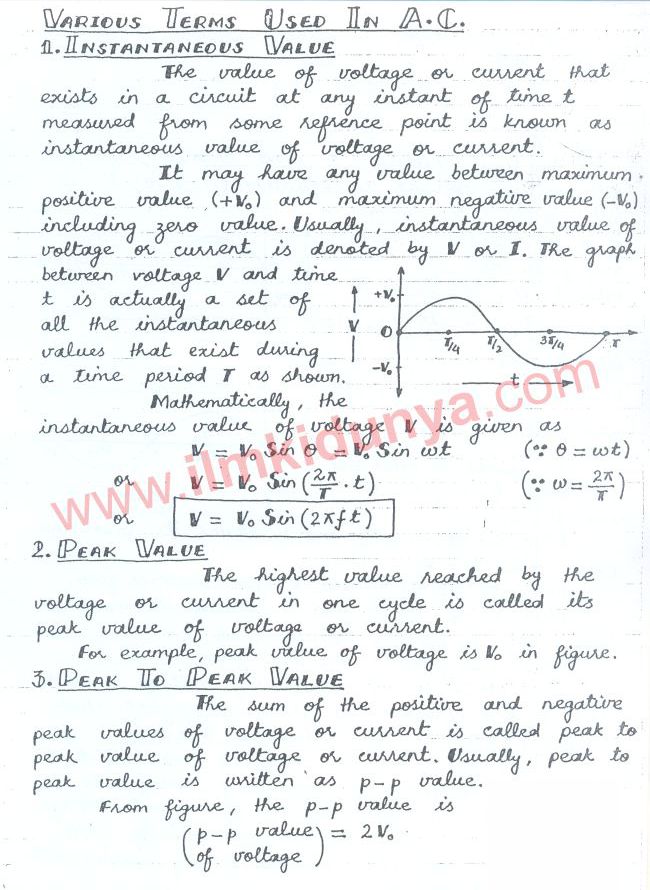 VARIOUS TERMS USED IN A.C.
1. INSTANTANEOUS VALUE
The value of voltage or current that
exists in a circuit at any instant of time t
measured from some refrence point is known as
instantaneous value of voltage or current.
It may have any value between maximum
positive value (+V₀) and maximum negative value (-V₀)
including zero value. Usually, instantaneous value of
voltage or current is denoted by V or I. The graph
between voltage V and time
t is actually a set of
all the instantaneous
values that exist during
a time period T as shown.
+V₀
V
O
T/4
T/2
3T/4
T
-V₀
t
Mathematically, the
instantaneous value of voltage V is given as
V = V₀ Sin θ = V₀ Sin ωt (∵ θ = ωt)
or V = V₀ Sin (2π/T · t) (∵ ω = 2π/T)
or V = V₀ Sin (2πft)
www.ilmkidunya.com
2. PEAK VALUE
The highest value reached by the
voltage or current in one cycle is called its
peak value of voltage or current.
For example, peak value of voltage is V₀ in figure.
3. PEAK TO PEAK VALUE
The sum of the positive and negative
peak values of voltage or current is called peak to
peak value of voltage or current. Usually, peak to
peak value is written as p-p value.
From figure, the p-p value is
(p-p value
of voltage) = 2V₀